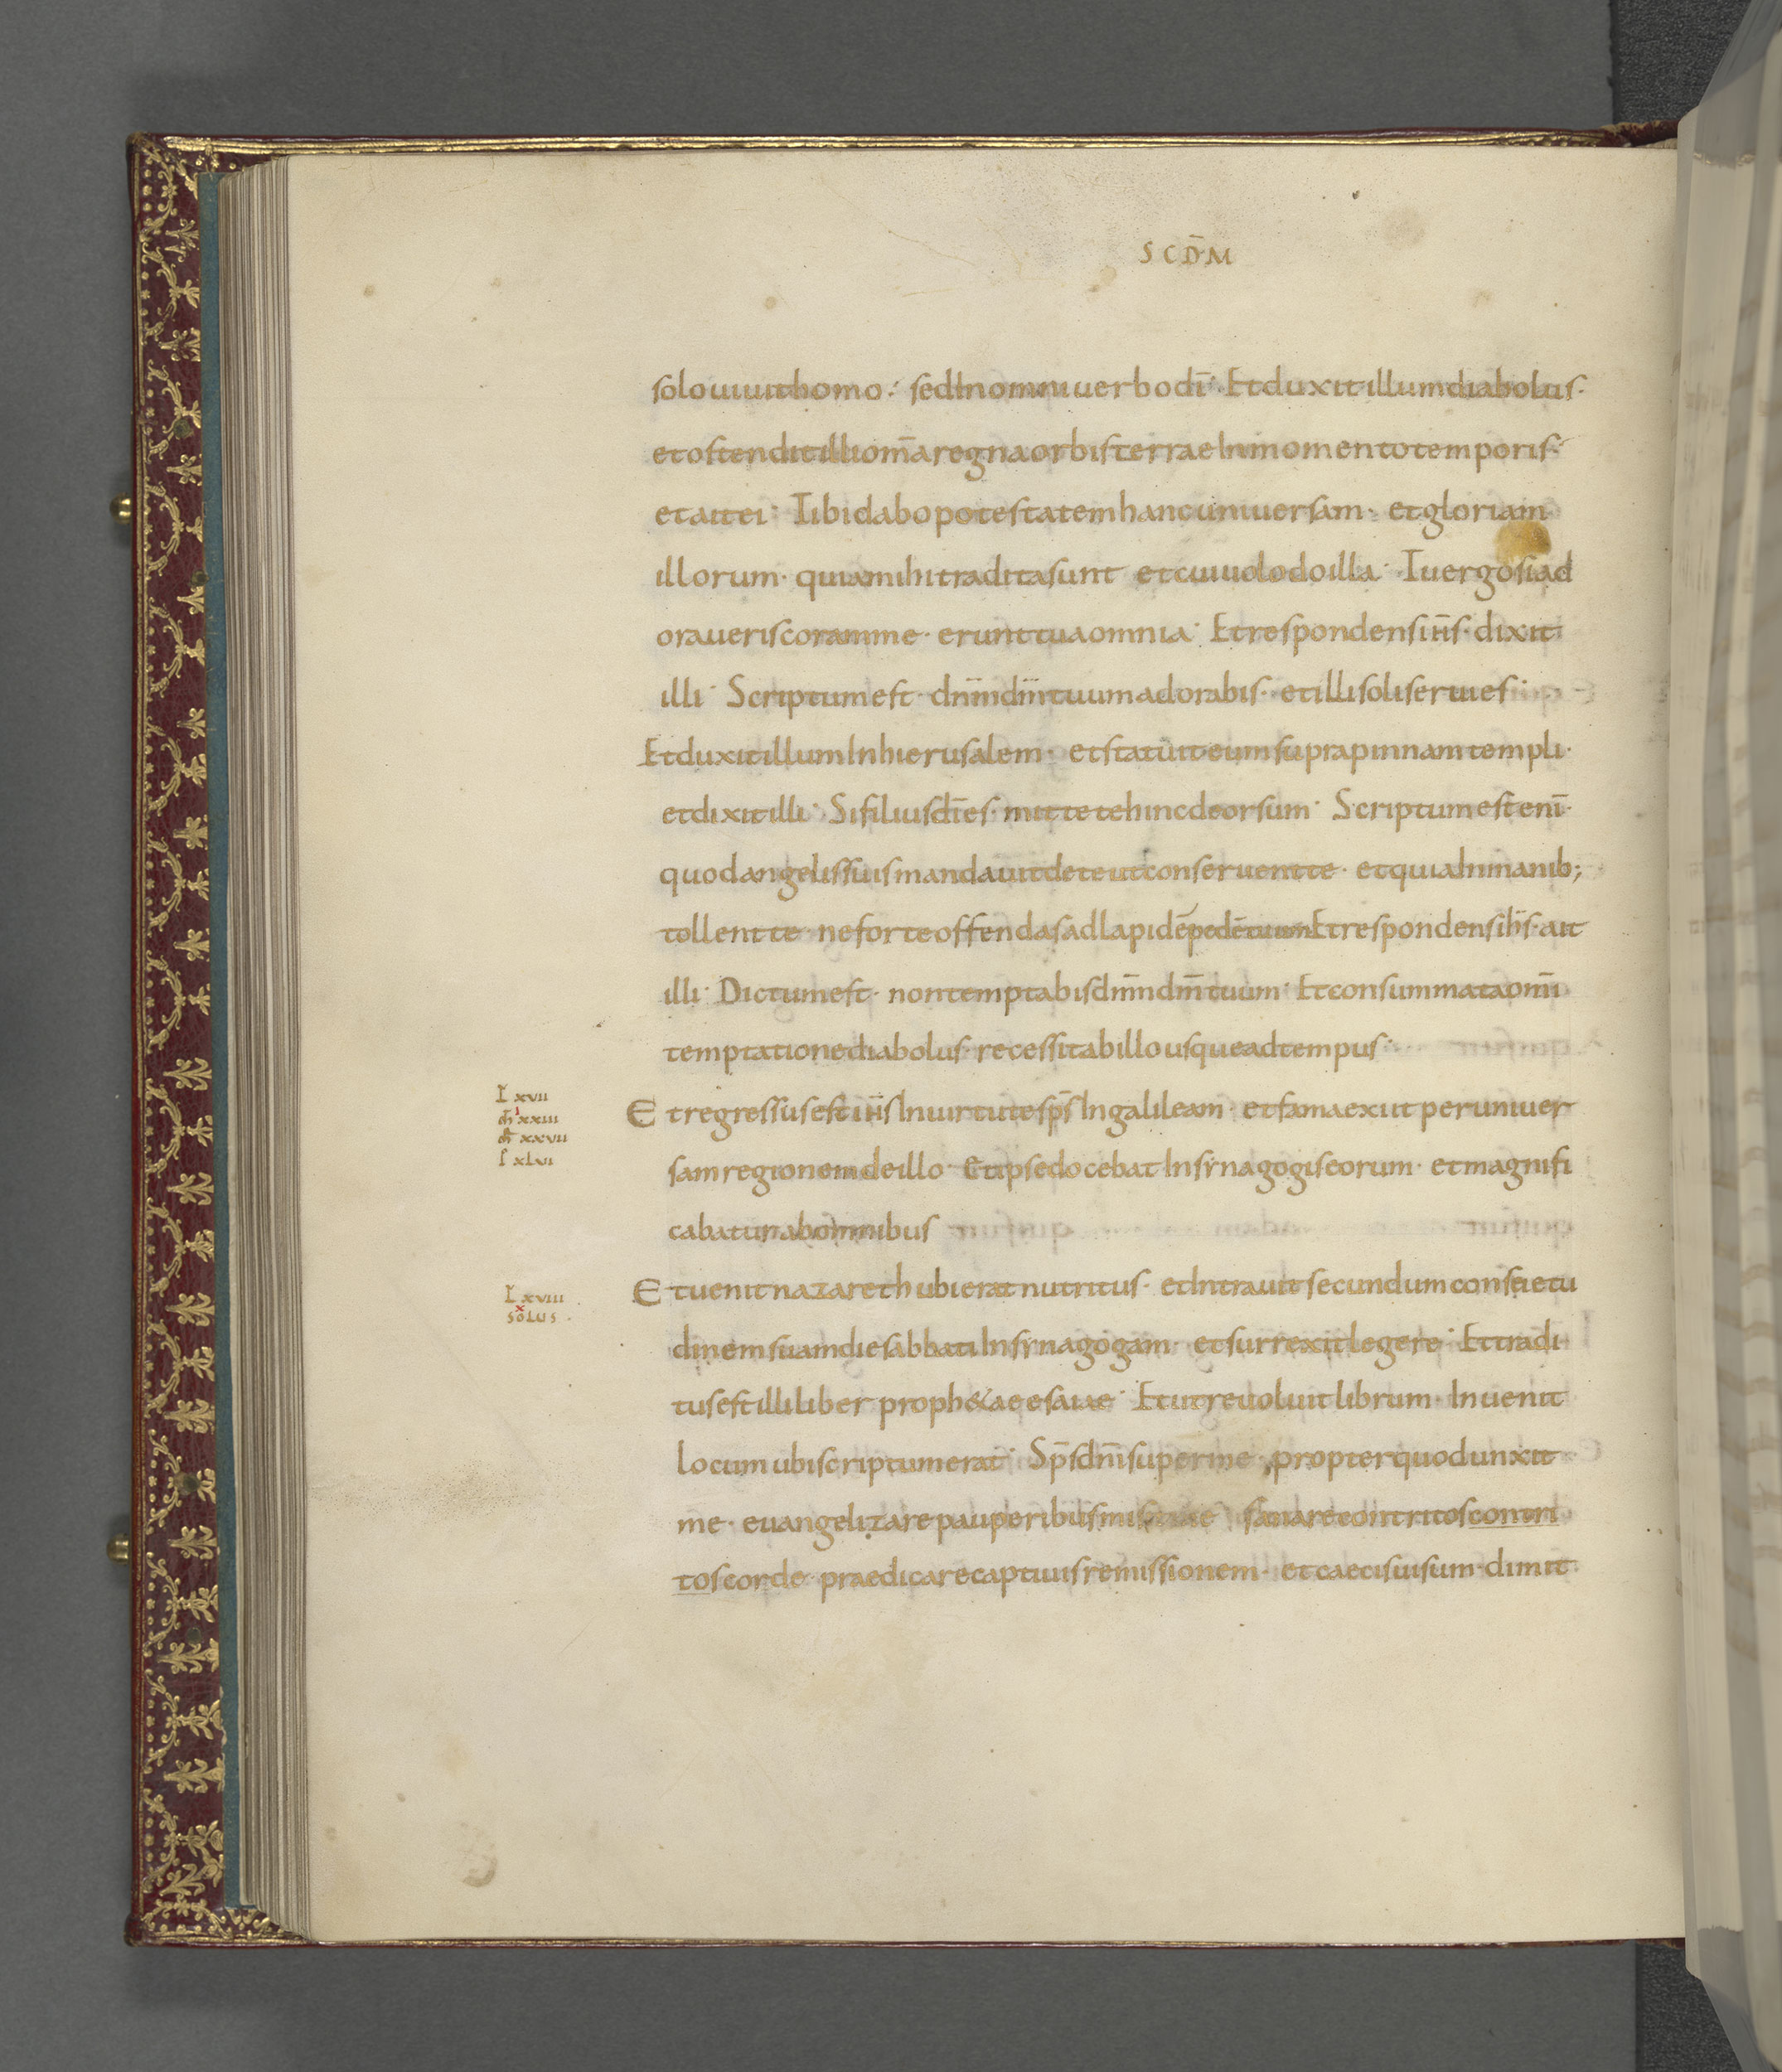 SCD̄M
solo uiuit homo · sed In omni uerbo dī · Et duxit illum diabolus ·
et ostendit illi om̄a regna orbis terrae In momento temporis ·
et ait ei · Tibi dabo potestatem hanc uniuersam · et gloriam
illorum · quia mihi tradita sunt et cui uolo do illa · Tu ergo si ad
oraueris coram me · erunt tua omnia · Et respondens ih̄s · dixit
illi · Scriptum est · dn̄m dm̄ tuum adorabis · et illi soli seruies ·
Et duxit illum In hierusalem · et statuit eum supra pinnam templi ·
et dixit illi · Si filius dī es · mitte te hinc deorsum · Scriptum est enī ·
quod angelis suis mandauit de te ut conseruent te · et quia In manib;
tollent te · ne forte offendas ad lapidē pedē tuum Et respondens ih̄s · ait
illi · Dictum est · non temptabis dn̄m dm̄ tuum · Et consummata omī
temptatione diabolus · recessit ab illo usque ad tempus ·
L xvii
mr̄ xxiii
mt̄ xxvii
I xlvi
Et regressus est ih̄s In uirtute sp̄s In galileam · et fama exiit per uniuer
sam regionem de illo · Et ipse docebat In synagogis eorum · et magnifi
cabatur ab omnibus
L xviii
x
SOLUS ·
Et uenit nazareth ubi erat nutritus · et Intrauit secundum consuetu
dinem suam die sabbati In synagogam · et surrexit legere · Et tradi
tus est illi liber proph&ae esaiae · Et ut reuoluit librum · Inuenit
locum ubi scriptum erat · Sp̄s dn̄i super me · propter quod unxit
me · euangelizare pauperibus sanare contritos contri
tos corde · praedicare captiuis remissionem · et caecis uisum · dimit